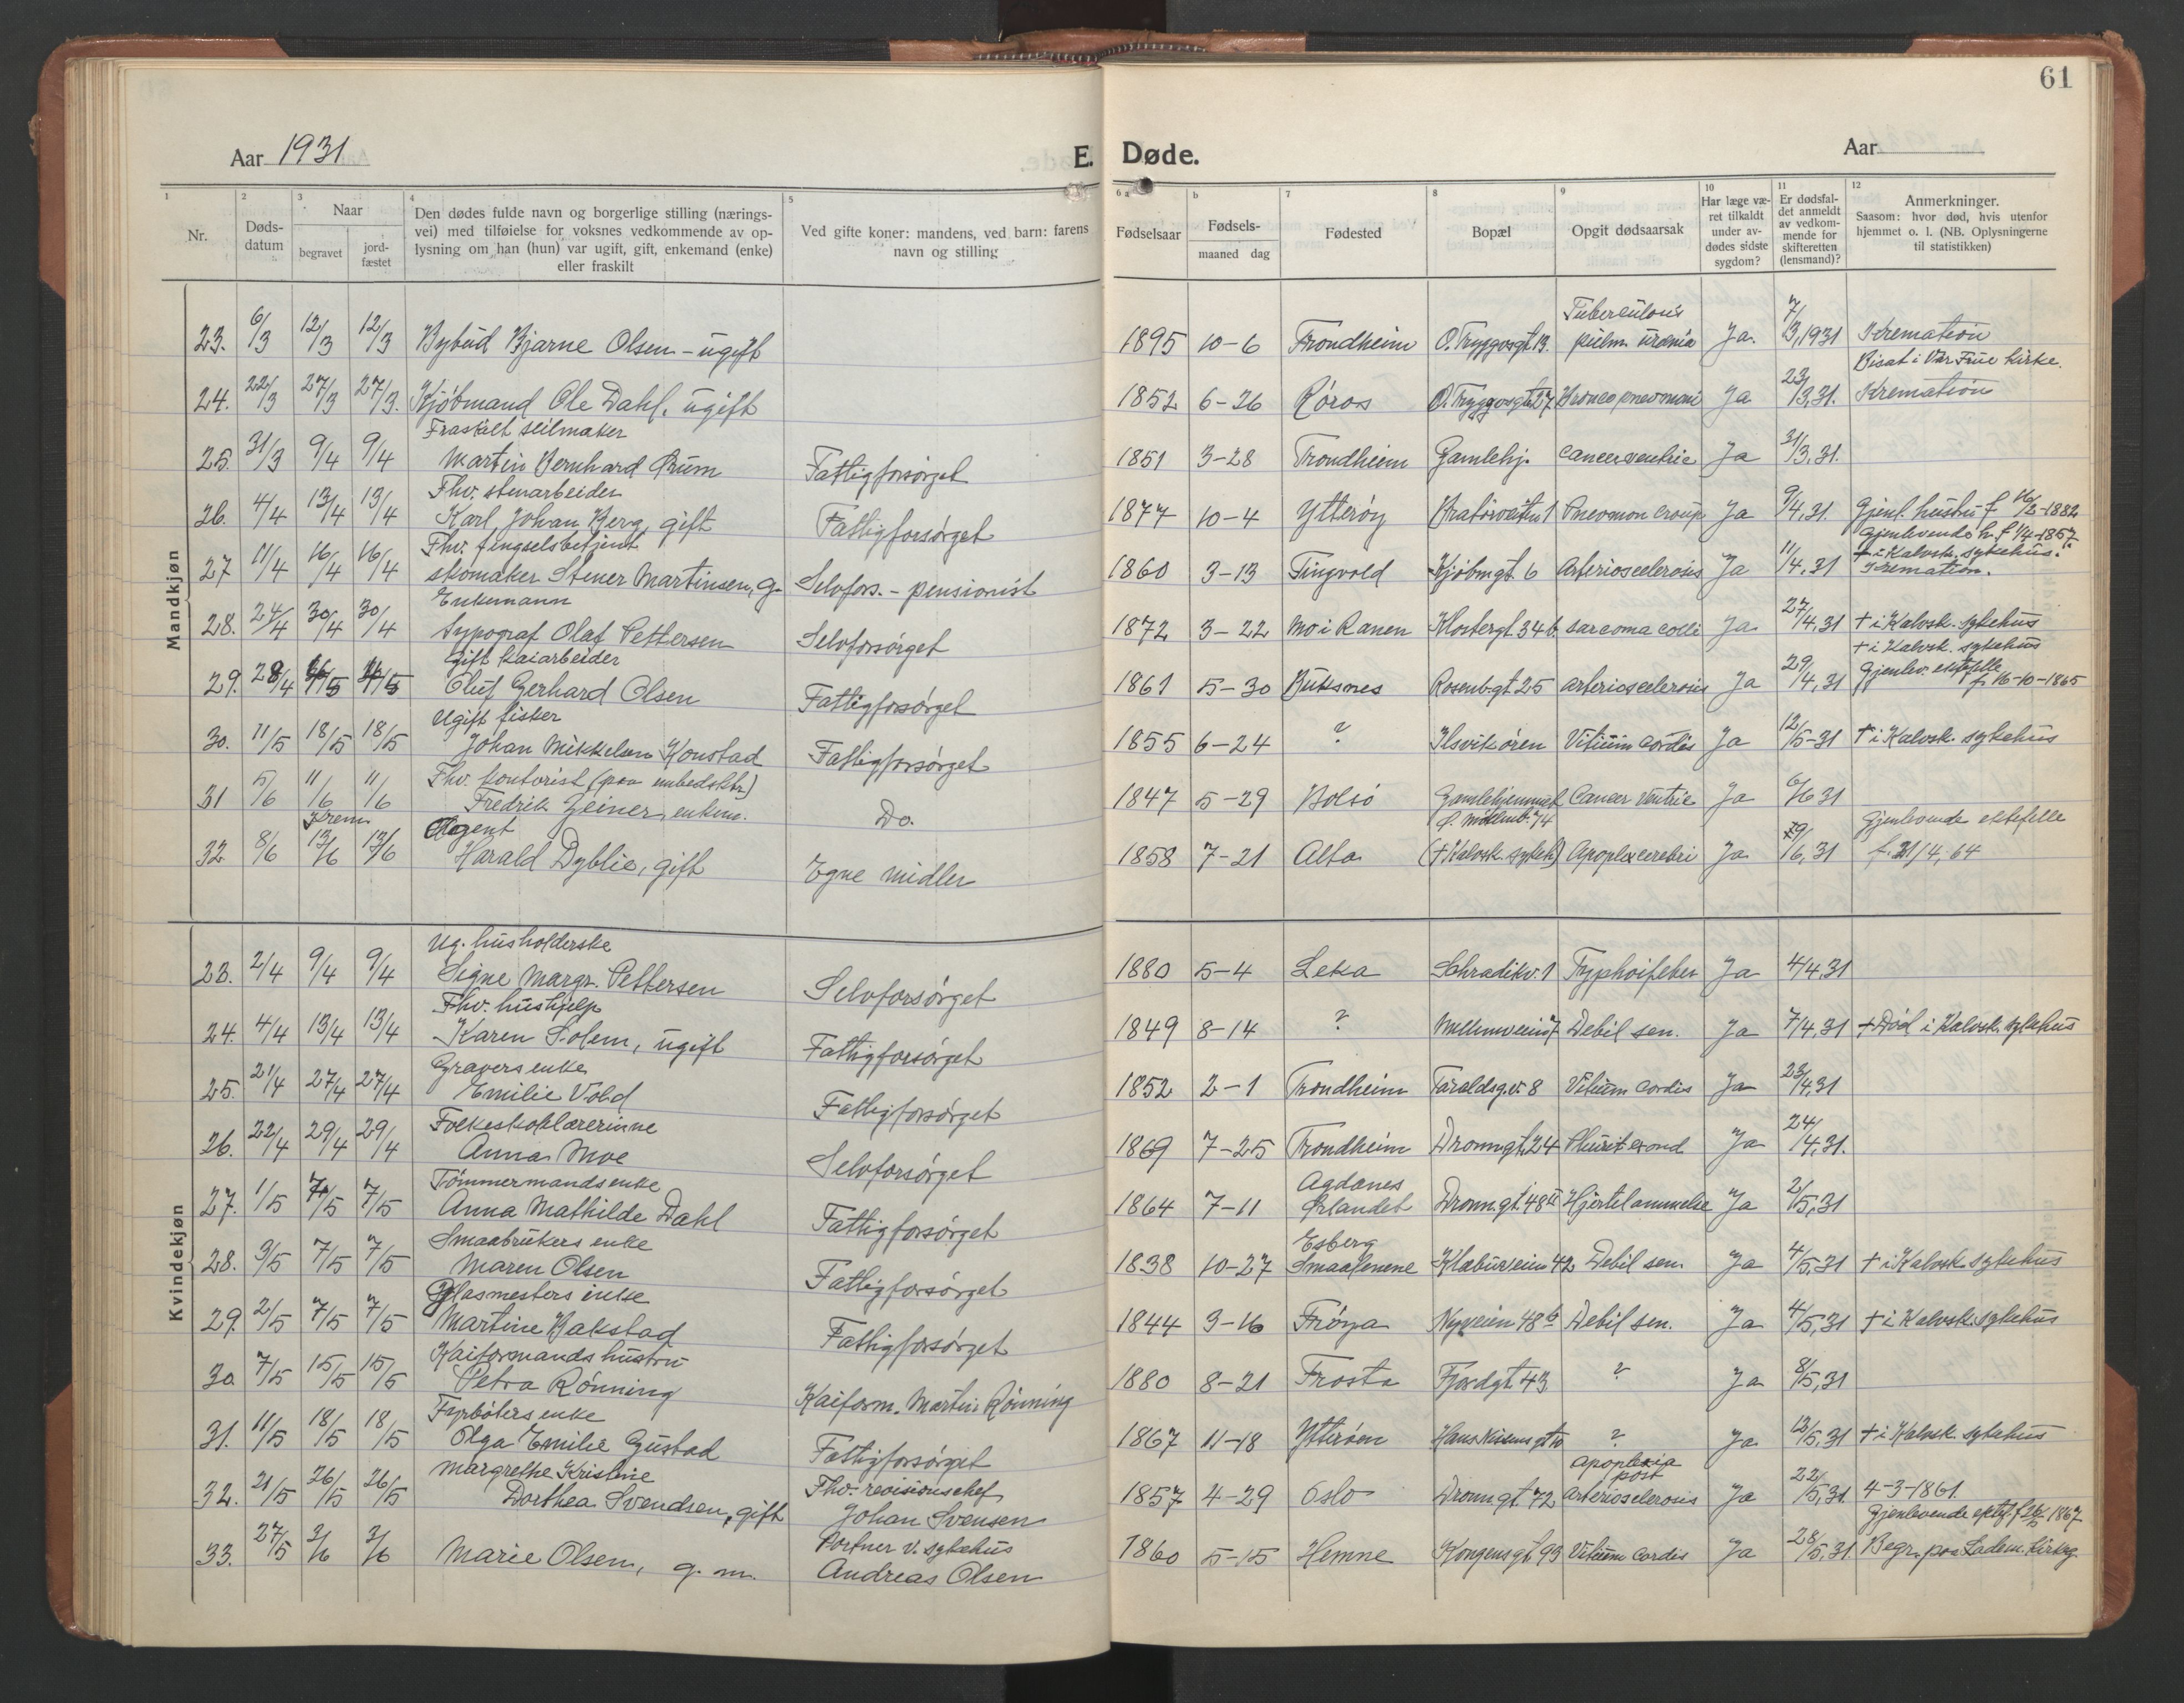 61
Aar 1931
E. Døde.
Aar
1 2 3 4 5 6 a b 7 8 9 10 11 12
Nr.
Døds-datum
Naar
begravet
jord-fæstet
Den dødes fulde navn og borgerlige stilling (nærings-
vei) med tilføielse for voksnes vedkommende av op-
lysning om han (hun) var ugift, gift, enkemand (enke)
eller fraskilt
Ved gifte koner: mandens, ved barn: farens
navn og stilling
Fødselsaar
Fødsels-
maaned dag
Fødested
Bopæl
Opgit dødsaarsak
Har læge væ-
ret tilkaldt
under av-
dødes sidste
sygdom?
Er dødsfal-
det anmeldt
av vedkom-
mende for
skifteretten
(lensmand)?
Anmerkninger.
Saasom: hvor død, hvis utenfor
hjemmet o. l. (NB. Oplysningerne
til statistikken)
Mandkjøn
23. 6/3 12/3 12/3 Bybud Bjarne Olsen - ugift 1895 10-6 Trondheim O. Tryggvsgt. 13. Tuberculosis pulm. urämia Ja. 7/3, 1931 Kremation
Bisat i Vår Frue Kirke.
24. 22/3 27/3 27/3. Kjøbmand Ole Dahl, ugift 1852 6-26 Røros O. Tryggvsgt. 27 Broncopneomoni Ja 23/3, 31. Kremation
Fraskilt seilmaker
25. 31/3 9/4 9/4 Martin Bernhard Drum Fattigforsørget 1851 3-28 Trondheim Gamlehj. Cancer ventric Ja 31/3, 31.
Fhv. stenarbeider
26. 4/4 13/4 13/4 Karl Johan Berg, gift Fattigforsørget 1877 10-4 Ytterøy Bratørveitn 1 Pneomon croup Ja 9/4, 31. Gjenl. hustru f 16/2-1882
Fhv. fengselsbetjent Gjenlevende h. f 1/4-1857
27 11/4 16/4 16/4 skomaker Stener Martinsen, g. Selvfors. - pensionist 1860 3-13 Tingvold Kjøbmgt. 6 Arteriosclerosis Ja 11/4, 31 + i Kalvsk. sykehus.
Kremation.
Enkemann
28. 24/4 30/4 30/4 typograf Olaf Pettersen Selvforsørget 1872 3-22 Mo i Ranen Klostergt. 34 b sarcoma colli Ja 27/4, 31 + i Kalvsk. sykehus
Gift kaiarbeider + i Kalvsk. sykehus
29. 28/4 4/5 4/5 Oluf Gerhard Olsen Fattigforsørget 1861 5-30 Buksnes Rosenb.gt 25 arteriosclerosis Ja 29/4, 31 Gjenlev. ektefelle
f. 16-10-1865
Ugift fisker
30. 11/5 18/5 18/5 Johan Mikkelsen Konstad Fattigforsørget 1855 6-24 ? Ilsvikøren Vitium cordis Ja 12/5-31 + i Kalvsk. sykehus
Fhv. kontorist (paa embedsktr.)
31 5/6 11/6 11/6 Fredrik Zeiner, enkem. Do. 1847 5-29 Bolsø Gamlehjemmet Cancer Ventric Ja 6/6 31
Krem. Agent Ø. Møllenb. 74 Gjenlevende ektefelle
32 8/6 13/6 13/6 Harald Dyblie, gift Egne midler 1858 7-21 Alta (+ Kalvsk. sykeh) Apoplex cerebri Ja 9/6, 31 f. 21/4, 64
Kvindekjøn
Ug. husholderske
23. 2/4 9/4 9/4 Signe Margr. Pettersen Selvforsørget 1880 5-4 Leka Schradikv. 1 Typhoifeber Ja 4/4, 31
Fhv. hushjelp
24. 4/4 13/4 13/4 Karen Solem, ugift Fattigforsørget 1849 8-14 ? Debil sen. Ja 7/4, 31 + Død i Kalvsk. sykehus
Gravers enke
25. 21/4 27/4 27/4 Emilie Vold Fattigforsørget 1852 2-1 Trondheim Taraldsgv. 8 Vitium cordis Ja 23/4, 31
Folkeskolelærerinne
26. 22/4 29/4 29/4 Anna Moe Selvforsørget 1869 7-25 Trondheim Dronn.gt. 24 Pleurit exsud Ja 24/4, 31.
Tømmermands enke Agdanes
27. 1/5 7/5 7/5 Anna Mathilde Dahl Fattigforsørget 1864 7-11 Ørlandet Dronn.gt. 48 II Hjertelammelse Ja 2/5, 31
Smaabrukers enke Esberg
28. 3/5 7/5 7/5 Maren Olsen Fattigforsørget 1838 10-27 Smaalenene Klæbuveien 42 Debil sen. Ja 4/5, 31 + i Kalvsk. sykehus
Glasmesters enke
29. 2/5 7/5 7/5 Martine Bakstad Fattigforsørget 1844 3-16 Frøya Nyveien 48 b Debil sen. Ja 4/5, 31 + i Kalvsk. sykehus
Kaiformands hustru
30 7/5 15/5 15/5 Petra Rønning Kaiform. Martin Rønning 1880 8-21 Frosta Fjordgt. 43 ? Ja 8/5, 31
Fyrbøters enke
31. 11/5 18/5 18/5 Olga Emilie Gustad Fattigforsørget 1867 11-18 Ytterøen Hans Nissens gt 10 ? Ja 12/5, 31 + i Kalvsk. sykehus
Margrethe Kristine Fhv. revisionschef apoplexia post
32. 21/5 26/5 26/5 Dorthea Svendsen, gift Johan Svensen 1857 4-29 Oslo Dronn.gt. 72 Arteriosclerosis Ja 22/5, 31. 4-3-1861.
Portner v. sykehus Gjenlevende ektef. 1867
33. 27/5 3/6 3/6 Marie Olsen, g. m. Andreas Olsen 1860 5-15 Hemne Kongensgt. 93 Vitium Cordis Ja 28/5, 31. Begr. paa Ladem. Kirkeg.